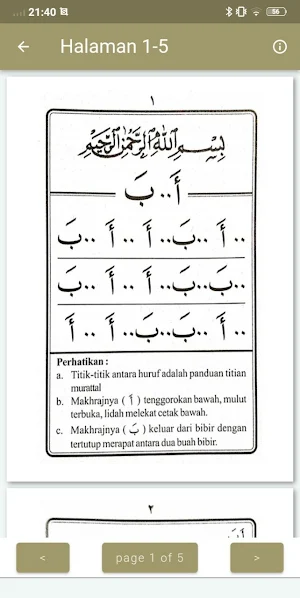 21:40
56
Halaman 1-5
١
بِسْمِ اللهِ الرَّحْمٰنِ الرَّحِيْمِ
أَ .. بَ
.. أَ .. بَ .. أَ .. أَ .. بَ
بَ .. بَ .. أَ .. أَ .. بَ
.. أَ .. بَ .. بَ .. أَ .. أَ
Perhatikan :
a. Titik-titik antara huruf adalah panduan titian
murattal
b. Makhrajnya ( أَ ) tenggorokan bawah, mulut
terbuka, lidah melekat cetak bawah.
c. Makhrajnya ( بَ ) keluar dari bibir dengan
tertutup merapat antara dua buah bibir.
٢
< page 1 of 5 >